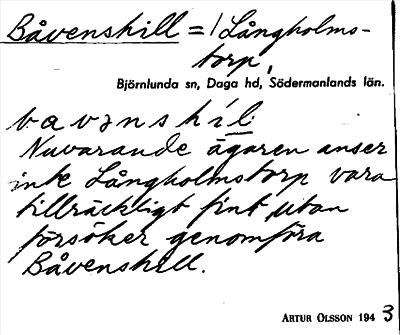 Båvenshill = / Långholms-
torp,
Björnlunda sn, Daga hd, Södermanlands län.
bavənshíl
Nuvarande ägaren anser
inte Långholmstorp vara
tillräckligt fint utan
försöker genomföra
Båvenshill.
ARTUR OLSSON 194 3